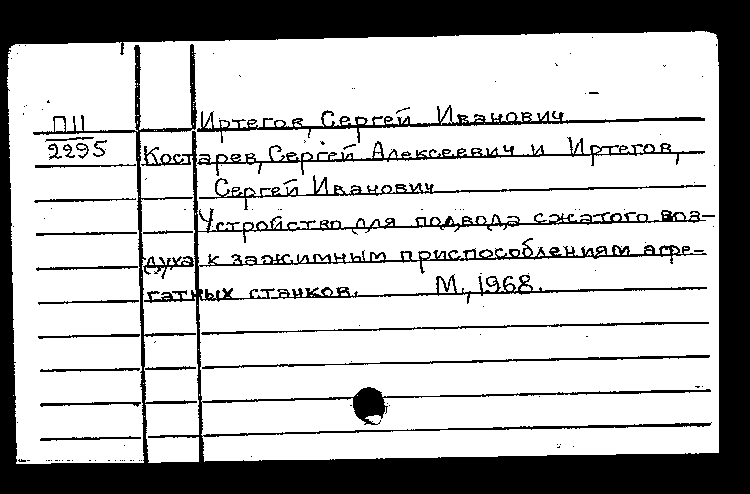 П11
2295
Иртегов, Сергей Иванович
Костарев, Сергей Алексеевич и Иртегов,
Сергей Иванович
Устройство для подвода сжатого воз-
духа к зажимным приспособлениям агре-
гатных станков. М., 1968.